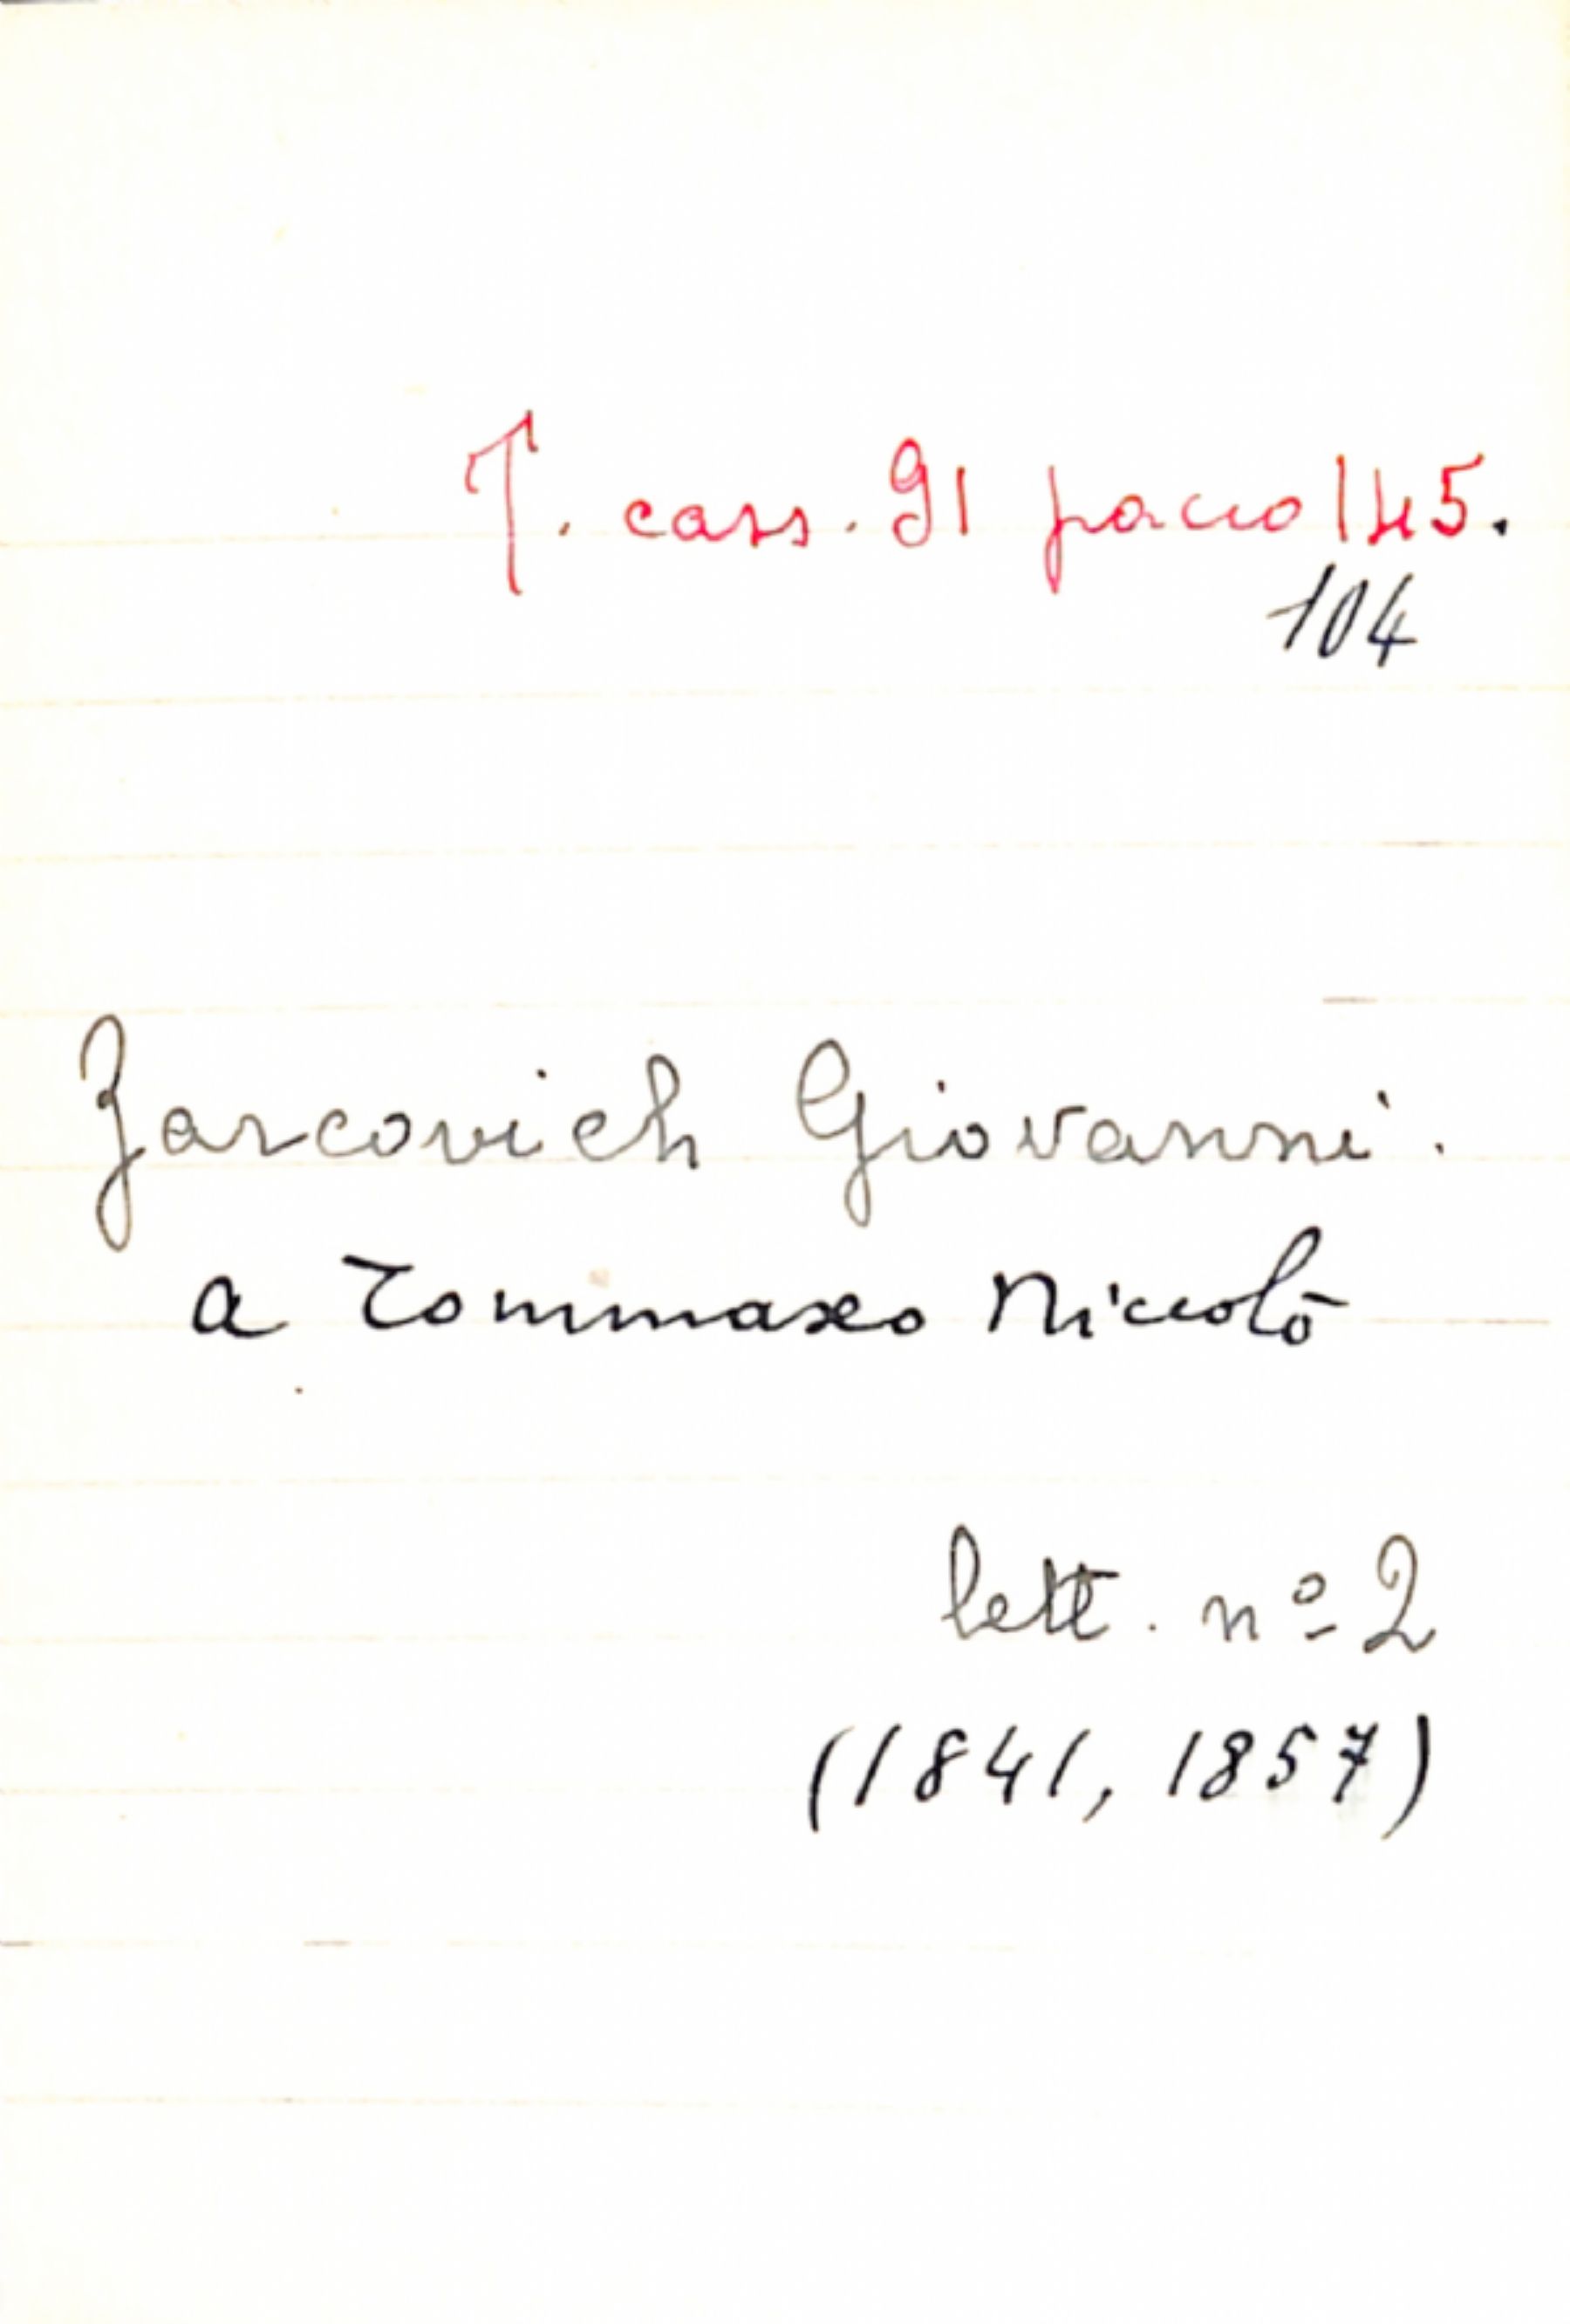 T. cass. 91 pacco 145.
104
Zarcovich Giovanni.
a Tommaseo Niccolò
lett. nº 2
(1841, 1857)